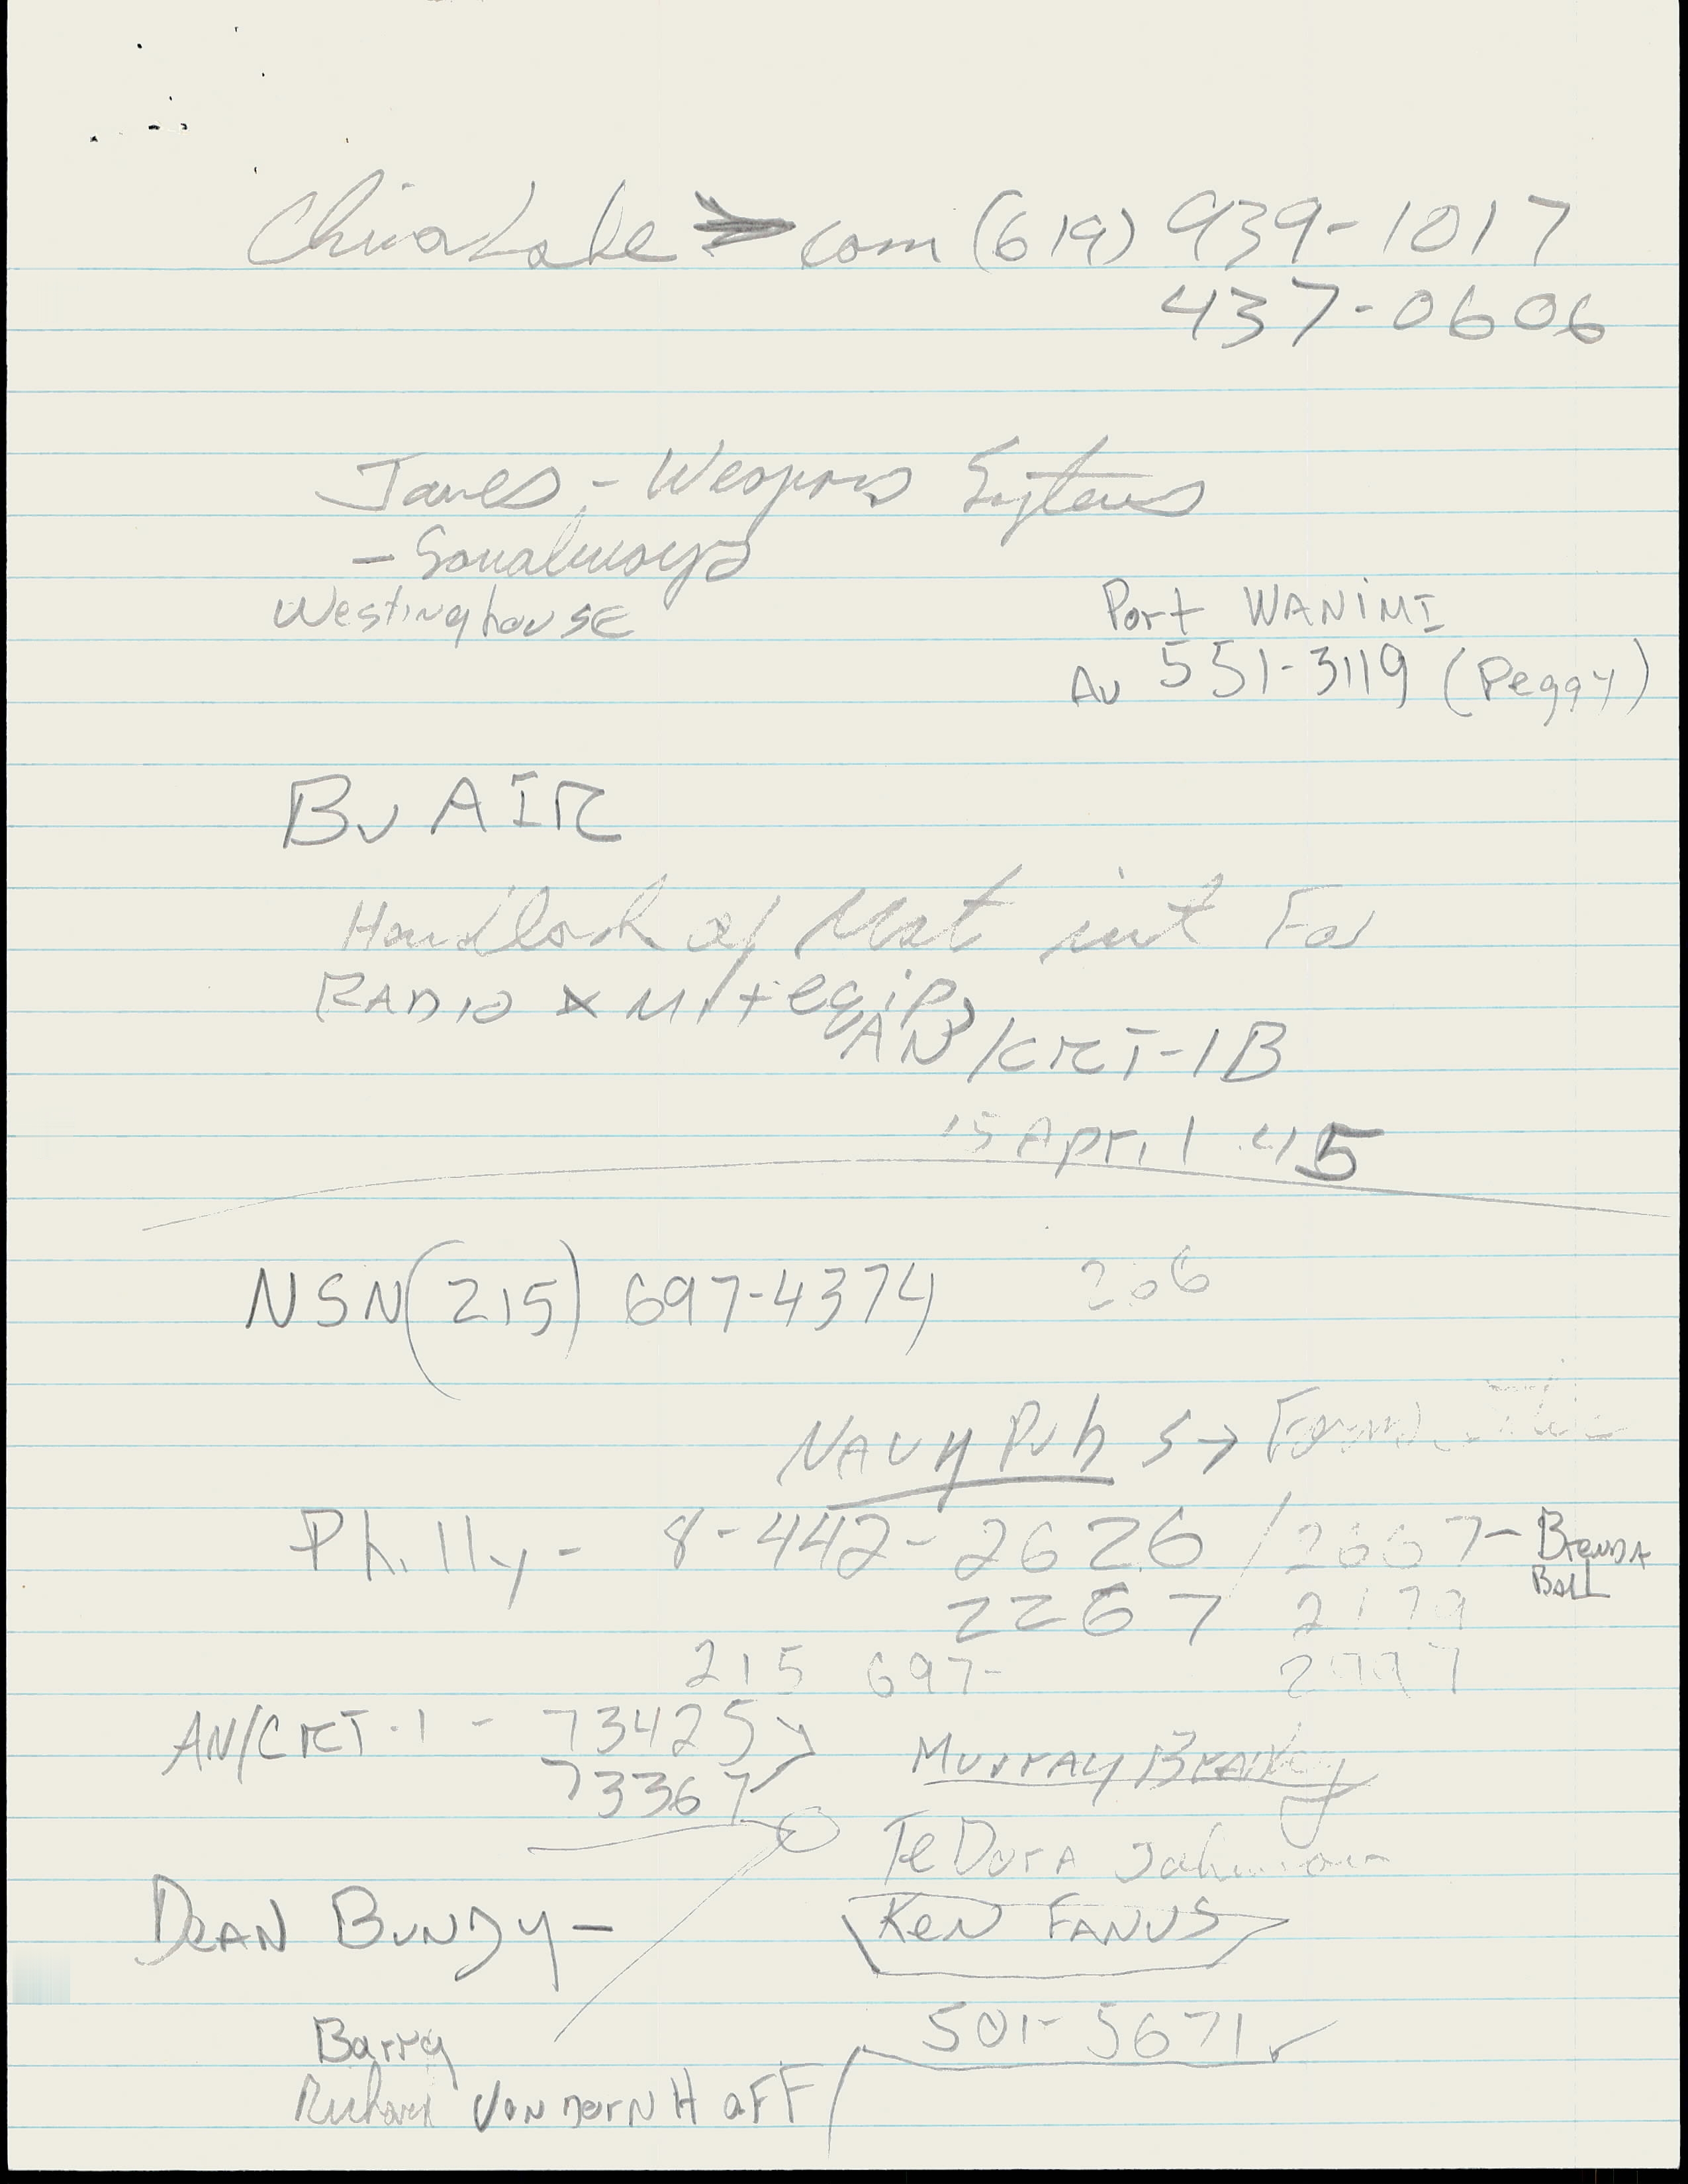 China Lake → com (619) 939-1017
437-0606
Janes - Weapons Systems
- Sonalbuoys
Westinghouse
Port WANIMI
AV 551-3119 (Peggy)
BuAIR
Handbook of Mat inst For
RADIO X MIT equip
AN/CRT-1B
15 April 45
NSN (215) 697-4374 206
NAVY Pubs →
Philly - 8-442-2626 / 2667 - Brenda
BALL
2267 2179
215 697- 2997
AN/CRT-1 - 73425
73367
MURRAY
TeDora Johnson
DEAN BUNDY -
KeN FANUS
501-5671
Barry
Richard VONDERNHOFF